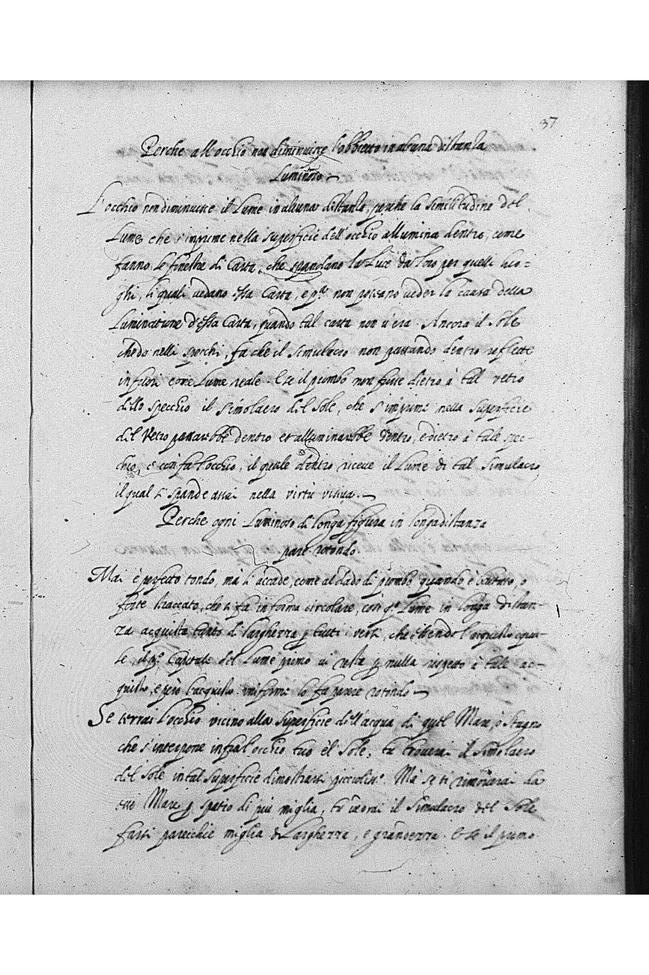 37
Perche all'occhio non diminuisce l'obbietto in alcuna distanza
Luminoso
L'occhio non diminuisce il Lume in alcuna distanza, perche la similitudine del
Lume che s'imprime nella superficie dell'occhio allumina dentro, come
fanno le finestre di Carta, che spandano la Luce da loro per quelli luo-
ghi, li quali vedano essa Carta, e non possano veder la causa della
luminatione d'essa Carta, quando tal carta non v'era. Ancora il Sole
nelli specchi, fa che il simulacro non passando dentro reflette
in fuori come Lume reale. E se il piombo non fusse dietro à tal vetro
dello specchio il simolacro del Sole, che s'imprime nella superficie
del Vetro passarebbe dentro et alluminarebbe dentro, e dietro à tale spec-
chio, e così fa l'occhio, il quale dentro riceve il Lume di tal Simulacro,
il qual si spande assai nella virtù visiva.
Perche ogni Luminoso di longa figura in longa distanza
pare rotondo
Mai è perfetto tondo, ma l'accade, come al dado di piombo quando è battuto, o
forte che si fa in forma circolare, così q.º Lume in longa distan-
za acquista tanto di larghezza p tutti i versi, che essendo l'acquisto equa-
le il Capitale del Lume primo vi resta p nulla rispetto à tale ac-
quisto, e però l'acquisto uniforme lo fa parere rotondo
Se terrai l'occhio vicino alla Superficie dell'acqua di Mare, ò Stagno
che s'interpone infra l'occhio tuo e'l Sole, tu troverai il simolacro
del Sole in tal superficie dimostrarsi piccoliss.º Ma se ti rimoverai da
Mare p spatio di più miglia, tu vedrai il Simulacro del Sole
farsi parecchie miglia di Largherra, e grandezza. E se il primo